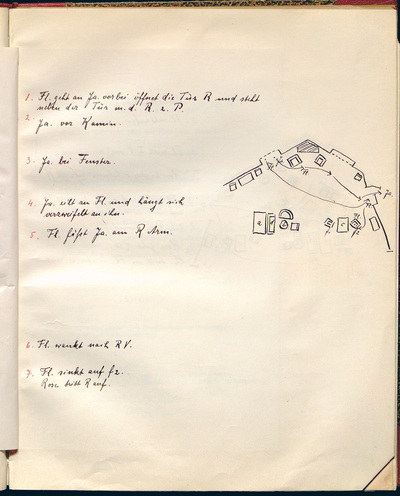 1. Fl. geht an Ja. vorbei öffnet die Tür R und steht
neben der Tür m. d. R. z. P
2. Ja. vor Kamin.
3. Ja. bei Fenster.
4. Ja. eilt zu Fl. und hängt sich
verzweifelt an ihn.
5. Fl. faßt Ja. am R Arm.
6. Fl. wankt nach R V.
7. Fl. sinkt auf f2.
Rosa tritt R auf.